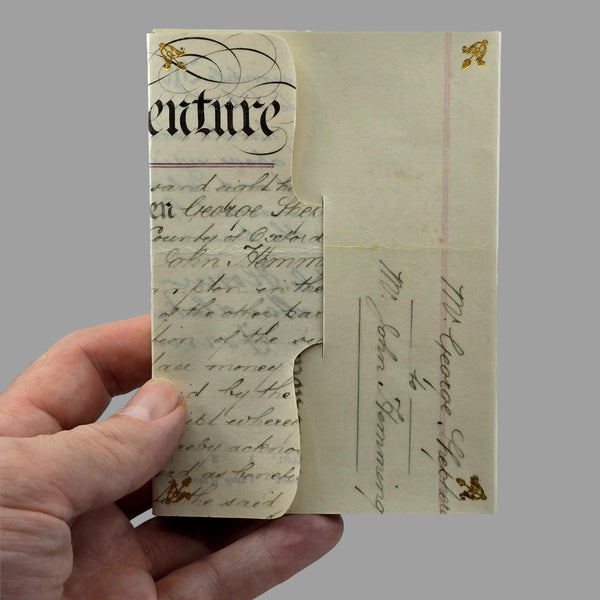 enture
sand eight h
en George Shep
County of Oxford
John Hemm
mpton in the
of the other par
tion of the s
lar money
id by the
whereo
hereby acknow
as hereby
the said
Mr. George Shephers
to
Mr. John Hemming